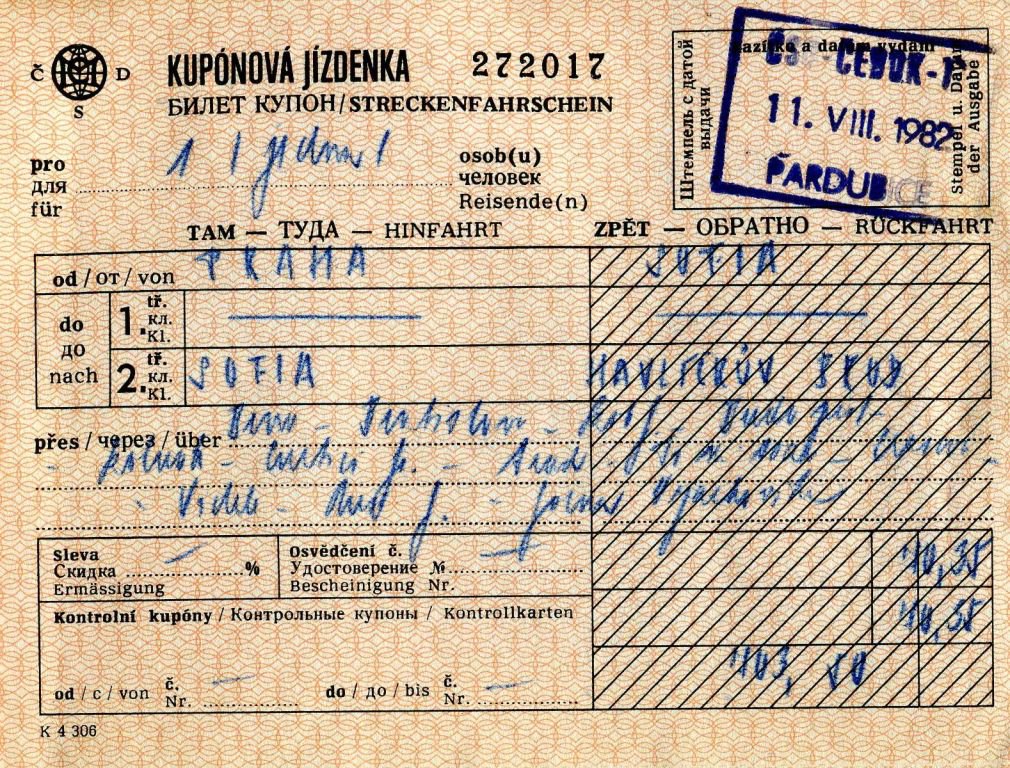 Č D
S
KUPÓNOVÁ JÍZDENKA 272017
БИЛЕТ КУПОН/STRECKENFAHRSCHEIN
Razítko a datum vydání
Штемпель с датой выдачи
Stempel u. Datum der Ausgabe
ČEDOK-
11. VIII. 1982
PARDUBICE
pro
для
für
1 | jedna |
osob(u)
человек
Reisende(n)
ТАМ — ТУДА — HINFAHRT
ZPĚT — ОБРАТНО — RÜCKFAHRT
od / от / von PRAHA SOFIA
do
до
nach
1. tř.
кл.
Kl.
2. tř.
кл.
Kl.
SOFIA HAVLÍČKŮV BROD
přes / через / über
Sleva
Скидка %
Ermässigung
Osvědčení č.
Удостоверение №
Bescheinigung Nr.
Kontrolní kupóny / Контрольные купоны / Kontrollkarten
od / с / von č.
Nr.
do / до / bis č.
Nr.
K 4 306